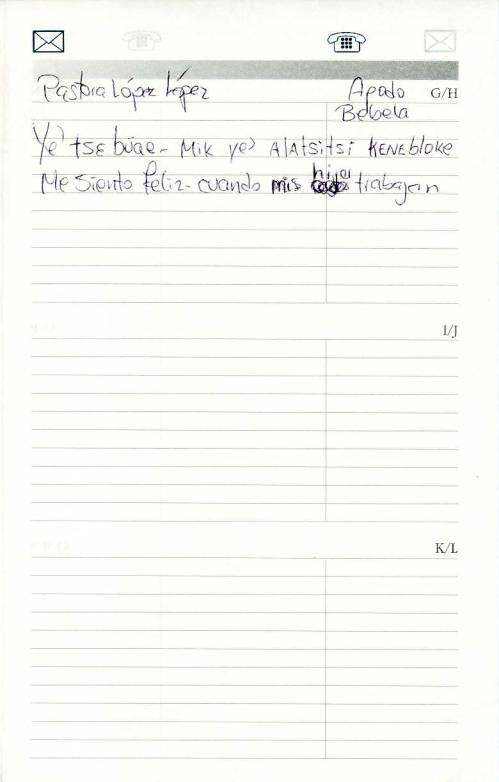 Pastora López López Apodo G/H
Bebela
Ye' tsE büae - Mik ye' AlAtsitsi KENEbloke
Me siento feliz - cuando mis hijos trabajan
I/J
K/L